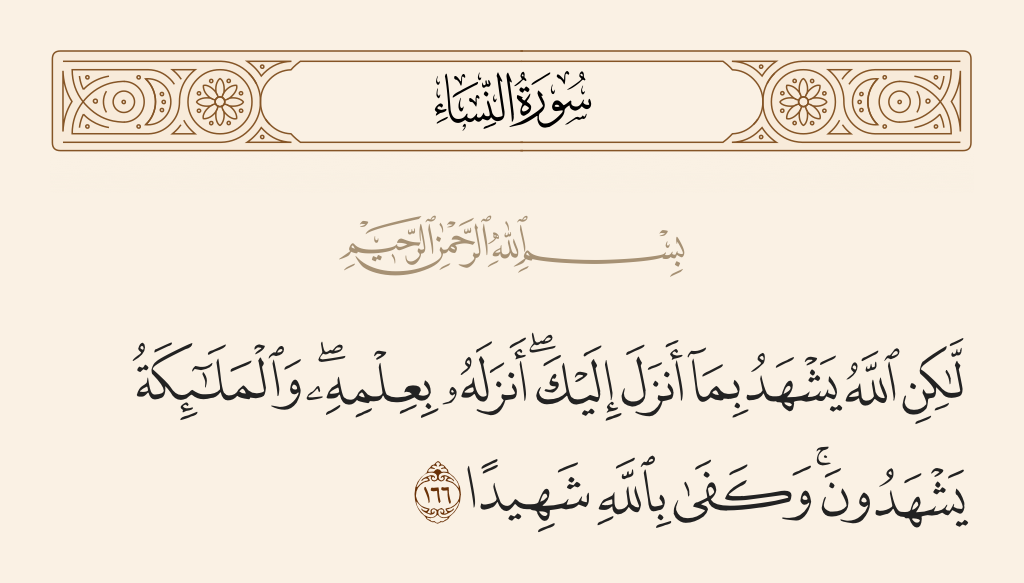 سُورَةُ النِّسَاءِ
بِسْمِ ٱللَّهِ ٱلرَّحْمَٰنِ ٱلرَّحِيمِ
لَّٰكِنِ ٱللَّهُ يَشْهَدُ بِمَآ أَنزَلَ إِلَيْكَ ۖ أَنزَلَهُۥ بِعِلْمِهِۦ ۖ وَٱلْمَلَـٰٓئِكَةُ
يَشْهَدُونَ ۚ وَكَفَىٰ بِٱللَّهِ شَهِيدًا ١٦٦